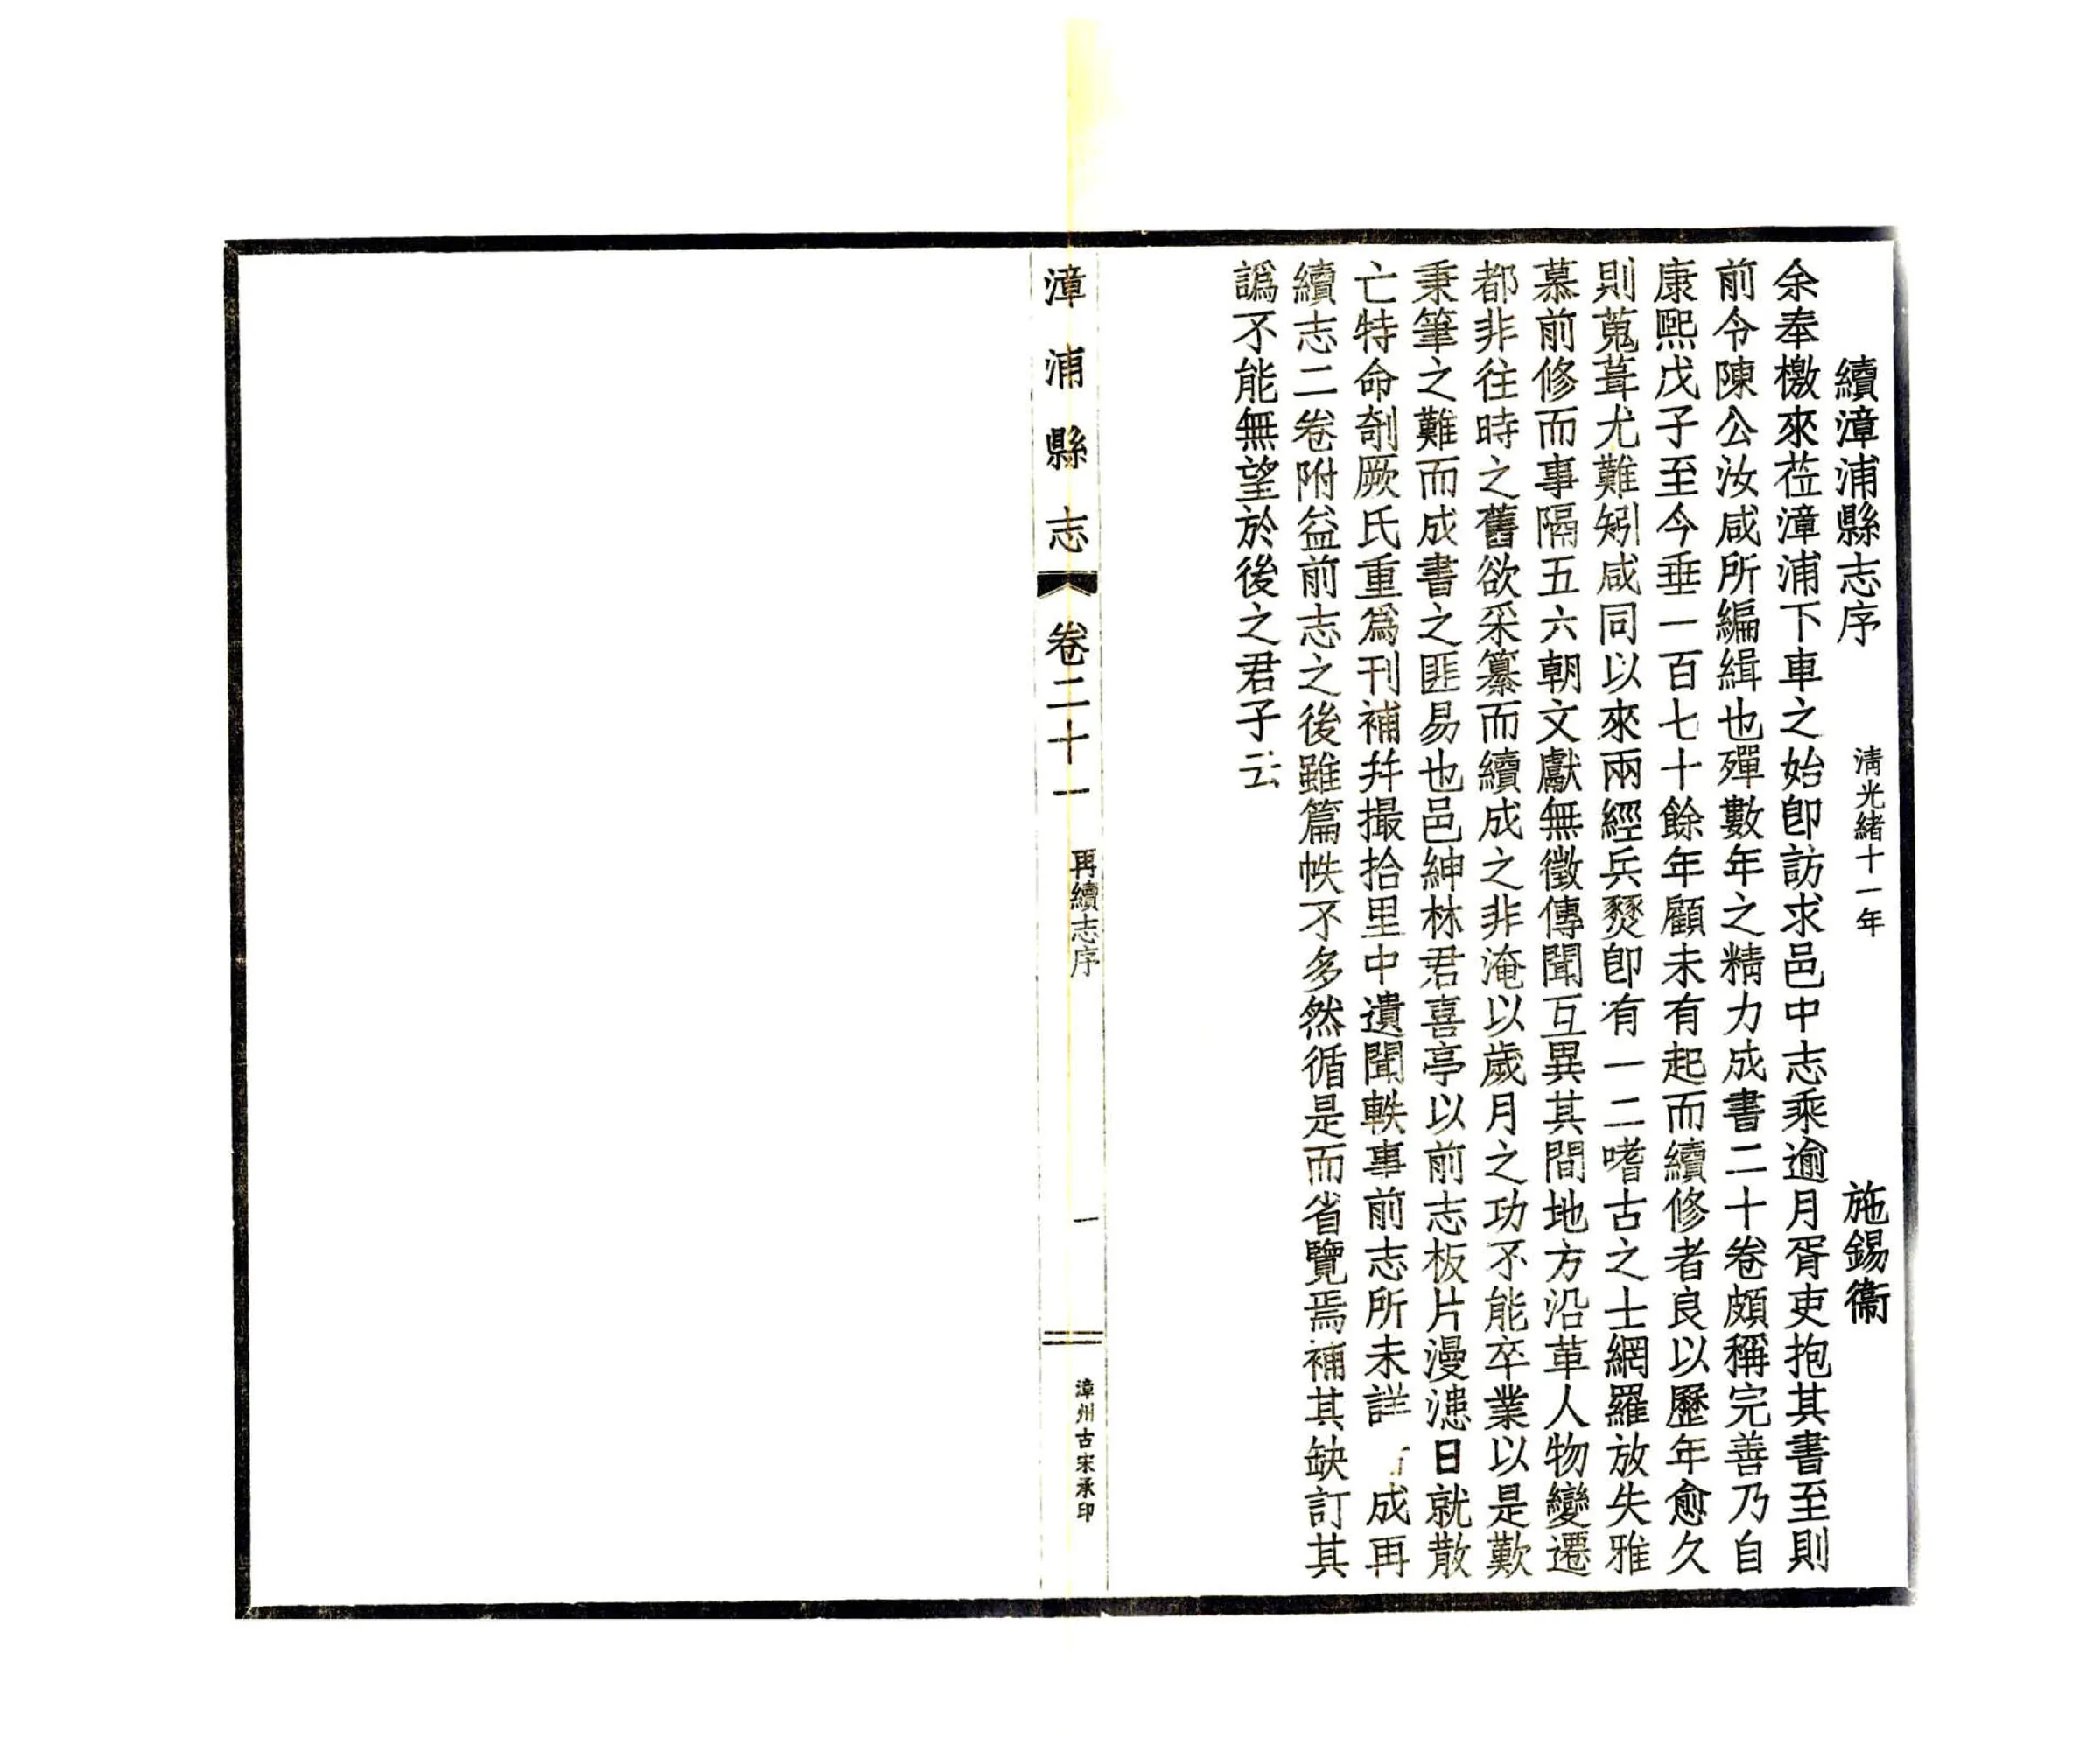 續漳浦縣志序 清光緒十一年 施錫衞
余奉檄來莅漳浦下車之始卽訪求邑中志乘逾月胥吏抱其書至則
前令陳公汝咸所編緝也殫數年之精力成書二十卷頗稱完善乃自
康熙戊子至今垂一百七十餘年顧未有起而續修者良以歷年愈久
則蒐葺尤難矧咸同以來兩經兵燹卽有一二嗜古之士網羅放失雅
慕前修而事隔五六朝文獻無徵傳聞互異其間地方沿革人物變遷
都非往時之舊欲采纂而續成之非淹以歲月之功不能卒業以是歎
秉筆之難而成書之匪易也邑紳林君喜亭以前志板片漫漶日就散
亡特命剞厥氏重爲刊補幷撮拾里中遺聞軼事前志所未詳 成再
續志二卷附益前志之後雖篇帙不多然循是而省覽焉補其缺訂其
譌不能無望於後之君子云
漳浦縣志 卷二十一 再續志序 一 漳州古宋承印